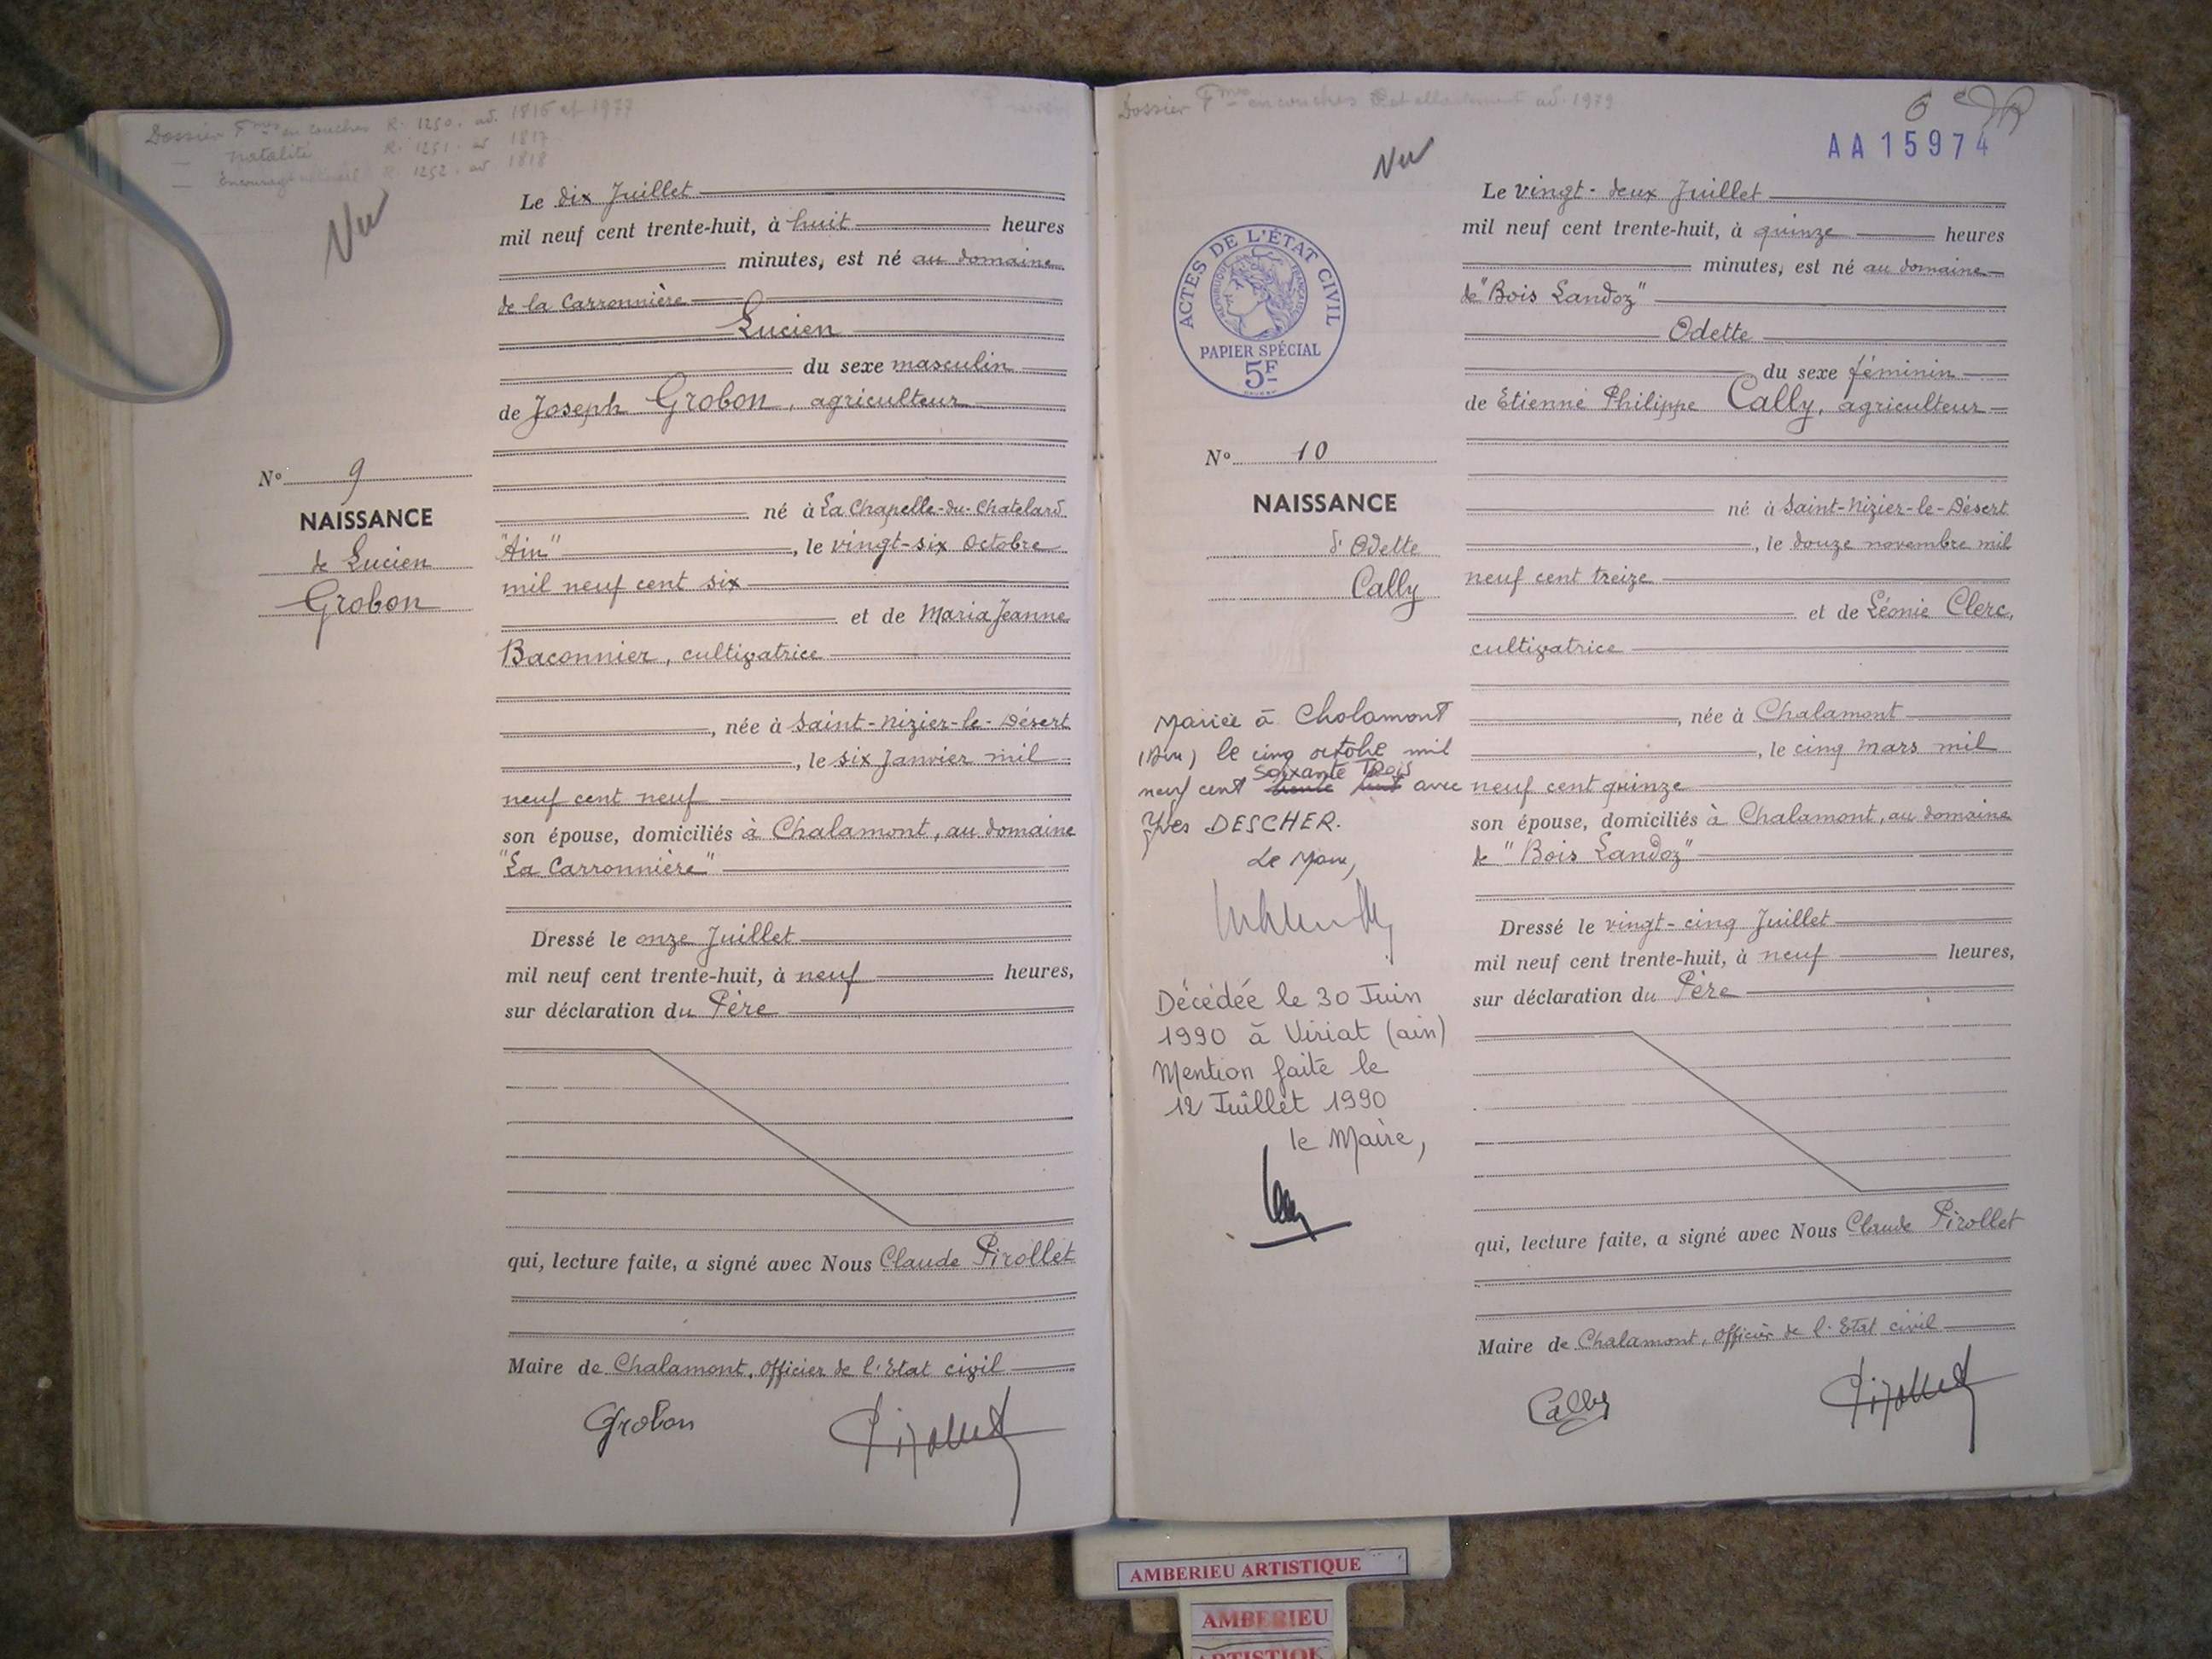 Dossier Fmes en couches R. 1250. ad. 1816 et 1977
— natalité R. 1251. ad 1817
— R. 1252. ad 1818
Vu
Le dix Juillet
mil neuf cent trente-huit, à huit heures
minutes, est né au domaine
de la Carronnière
Lucien
du sexe masculin
de Joseph Grobon, agriculteur
né à La Chapelle-du-Chatelard
"Ain", le vingt-six Octobre
mil neuf cent six
et de Maria Jeanne
Baconnier, cultivatrice
, née à Saint-Nizier-le-Désert
, le six Janvier mil
neuf cent neuf
son épouse, domiciliés à Chalamont, au domaine
"La Carronnière"
Dressé le onze Juillet
mil neuf cent trente-huit, à neuf heures,
sur déclaration du Père
qui, lecture faite, a signé avec Nous Claude Pirollet
Maire de Chalamont, Officier de l'Etat civil
Grobon Pirollet
No 9
NAISSANCE
de Lucien
Grobon
Dossier Fmes en couches et allaitement ad. 1979
6e
AA15974
Vu
ACTES DE L'ÉTAT CIVIL
RÉPUBLIQUE FRANÇAISE
PAPIER SPÉCIAL
5F
No 10
NAISSANCE
d'Odette
Cally
Mariée à Chalamont
(Ain) le cinq octobre mil
soixante trois
neuf cent trente huit avec
Yves DESCHER.
Le Maire,
Décédée le 30 Juin
1990 à Viriat (ain)
Mention faite le
12 Juillet 1990
le Maire,
Le vingt-deux Juillet
mil neuf cent trente-huit, à quinze heures
minutes, est né au domaine
de "Bois Landoz"
Odette
du sexe féminin
de Etienne Philippe Cally, agriculteur
né à Saint-Nizier-le-Désert
, le douze novembre mil
neuf cent treize
et de Léonie Clerc,
cultivatrice
, née à Chalamont
, le cinq mars mil
neuf cent quinze
son épouse, domiciliés à Chalamont, au domaine
de "Bois Landoz"
Dressé le vingt-cinq Juillet
mil neuf cent trente-huit, à neuf heures,
sur déclaration du Père
qui, lecture faite, a signé avec Nous Claude Pirollet
Maire de Chalamont, Officier de l'Etat civil
Cally Pirollet
AMBERIEU ARTISTIQUE
AMBERIEU
ARTISTIQUE